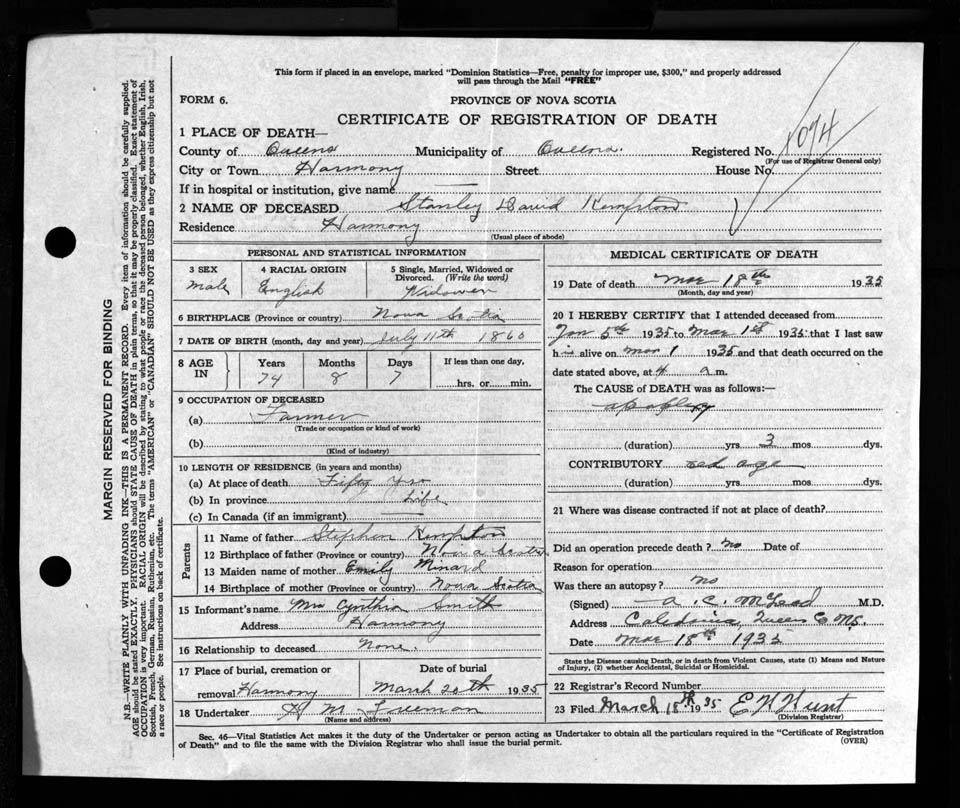 This form if placed in an envelope, marked "Dominion Statistics—Free, penalty for improper use, $300," and properly addressed
will pass through the Mail "FREE"
FORM 6.
PROVINCE OF NOVA SCOTIA
CERTIFICATE OF REGISTRATION OF DEATH
1 PLACE OF DEATH—
County of Queens Municipality of Queens. Registered No. 1074
(For use of Registrar General only)
City or Town Harmony Street House No.
If in hospital or institution, give name —
2 NAME OF DECEASED Stanley David Kempton
Residence Harmony
(Usual place of abode)
PERSONAL AND STATISTICAL INFORMATION
3 SEX 4 RACIAL ORIGIN 5 Single, Married, Widowed or
Divorced. (Write the word)
Male English Widower
6 BIRTHPLACE (Province or country) Nova Scotia
7 DATE OF BIRTH (month, day and year) July 11th 1860
8 AGE IN Years Months Days If less than one day,
74 8 7 hrs. or min.
9 OCCUPATION OF DECEASED
(a) Farmer
(Trade or occupation or kind of work)
(b)
(Kind of industry)
10 LENGTH OF RESIDENCE (in years and months)
(a) At place of death Fifty yrs
(b) In province Life
(c) In Canada (if an immigrant) —
Parents
11 Name of father Stephen Kempton
12 Birthplace of father (Province or country) Nova Scotia
13 Maiden name of mother Emily Minard
14 Birthplace of mother (Province or country) Nova Scotia
15 Informant's name Mrs Cynthia Smith
Address Harmony
16 Relationship to deceased None.
17 Place of burial, cremation or Date of burial
removal Harmony March 20th 1935
18 Undertaker H M Freeman
(Name and address)
MEDICAL CERTIFICATE OF DEATH
19 Date of death Mar 18th 1935
(Month, day and year)
20 I HEREBY CERTIFY that I attended deceased from
Jan 5th 1935 to Mar 1st 1935 that I last saw
h im alive on Mar 1 1935 and that death occurred on the
date stated above, at 4 a m.
The CAUSE of DEATH was as follows:—
apoplexy
(duration) yrs 3 mos dys.
CONTRIBUTORY old age
(duration) yrs mos dys.
21 Where was disease contracted if not at place of death?
Did an operation precede death? No Date of
Reason for operation
Was there an autopsy? no
(Signed) A. C. McLeod M.D.
Address Caledonia, Queens Co N.S.
Date Mar 18th 1935
State the Disease causing Death, or in death from Violent Causes, state (1) Means and Nature
of Injury, (2) whether Accidental, Suicidal or Homicidal.
22 Registrar's Record Number
23 Filed March 18th 1935 E K Hunt
(Division Registrar)
Sec. 46—Vital Statistics Act makes it the duty of the Undertaker or person acting as Undertaker to obtain all the particulars required in the "Certificate of Registration
of Death" and to file the same with the Division Registrar who shall issue the burial permit.
(OVER)
MARGIN RESERVED FOR BINDING
N.B.—WRITE PLAINLY WITH UNFADING INK—THIS IS A PERMANENT RECORD. Every item of information should be carefully supplied.
AGE should be stated EXACTLY. PHYSICIANS should STATE CAUSE OF DEATH in plain terms, so that it may be properly classified. Exact statement of
OCCUPATION is very important. RACIAL ORIGIN will be described by stating to what people or race the deceased person belonged, whether English, Irish,
Scottish, French, German, Russian, Ruthenian, etc. The terms "AMERICAN" or "CANADIAN" SHOULD NOT BE USED as they express citizenship but not
a race or people. See instructions on back of certificate.